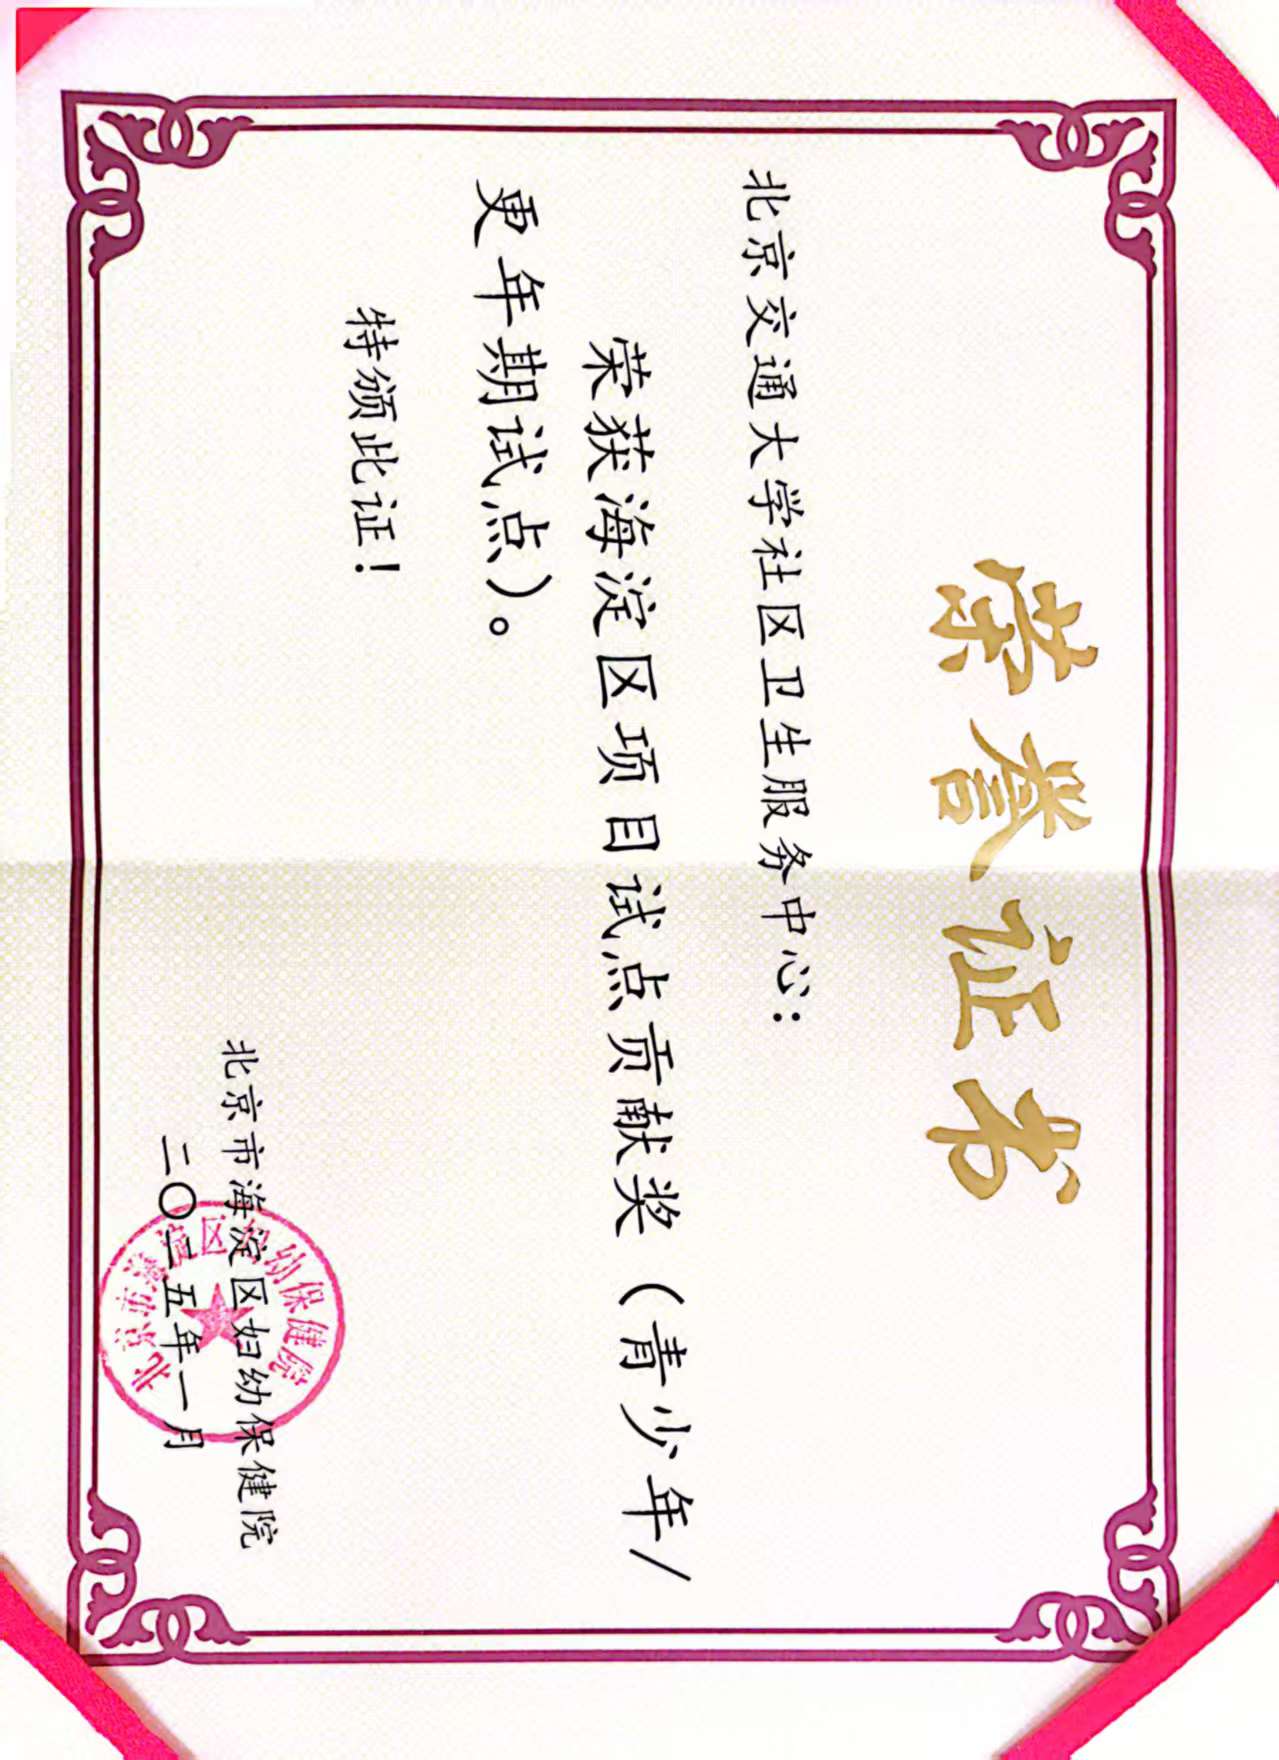 荣誉证书
北京交通大学社区卫生服务中心：
荣获海淀区项目试点贡献奖（青少年/
更年期试点）。
特颁此证！
北京市海淀区妇幼保健院
二〇二五年一月
北京市海淀区妇幼保健院